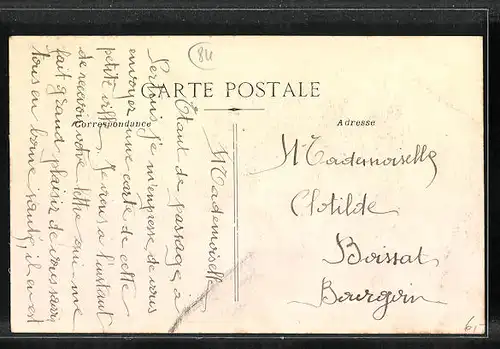 84
CARTE POSTALE
Correspondance
Adresse
Mademoiselle
Étant de passage à
Serdinis je m'empresse de vous
envoyer une carte de cette
petite ville. Je viens à l'instant
de recevoir votre lettre qui me
fait grand plaisir de vous savoir
tous en bonne santé, il en est
Mademoiselle
Clotilde
Boissat
Bourgoin